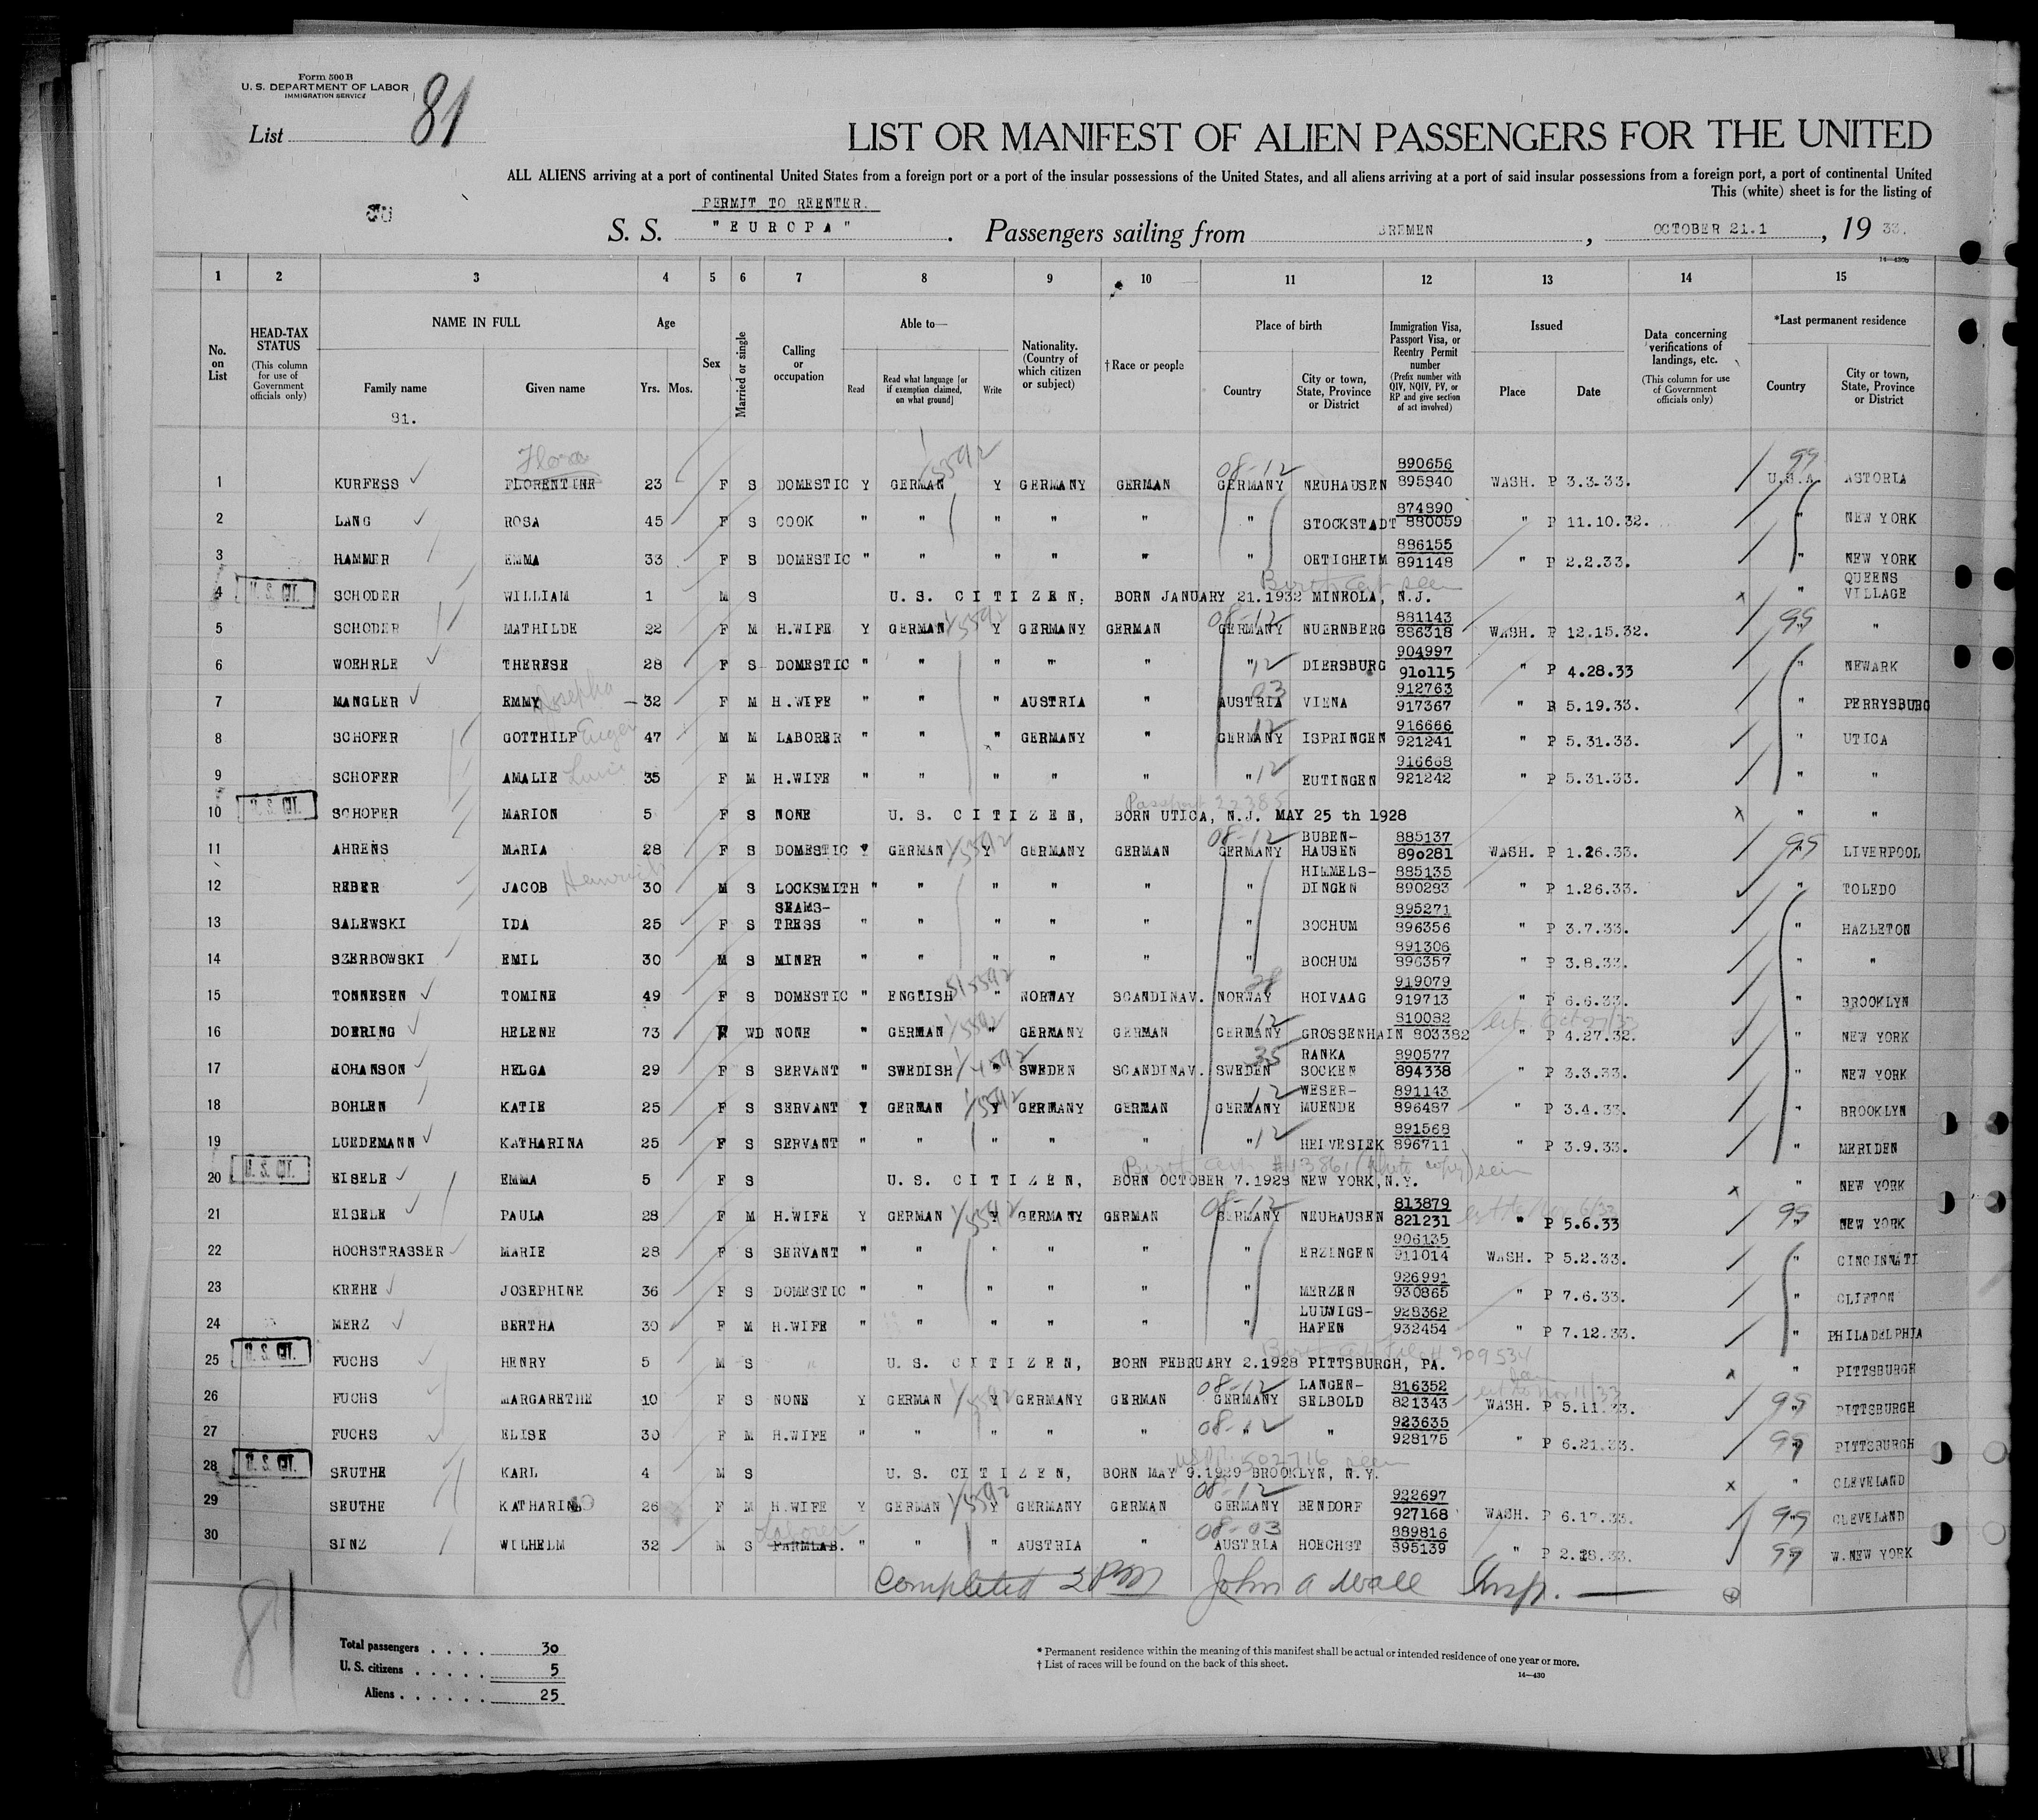 Form 500 B
U. S. DEPARTMENT OF LABOR
IMMIGRATION SERVICE
List 81
LIST OR MANIFEST OF ALIEN PASSENGERS FOR THE UNITED
ALL ALIENS arriving at a port of continental United States from a foreign port or a port of the insular possessions of the United States, and all aliens arriving at a port of said insular possessions from a foreign port, a port of continental United
This (white) sheet is for the listing of
PERMIT TO REENTER.
S. S. "EUROPA". Passengers sailing from BREMEN, OCTOBER 21.1, 19 33.
14-430b
1 2 3 4 5 6 7 8 9 10 11 12 13 14 15
No. on List
HEAD-TAX STATUS (This column for use of Government officials only)
NAME IN FULL Family name Given name
81.
Age Yrs. Mos.
Sex
Married or single
Calling or occupation
Able to— Read Read what language [or if exemption claimed, on what ground] Write
Nationality. (Country of which citizen or subject)
†Race or people
Place of birth Country City or town, State, Province or District
Immigration Visa, Passport Visa, or Reentry Permit number (Prefix number with QIV, NQIV, PV, or RP and give section of act involved)
Issued Place Date
Data concerning verifications of landings, etc. (This column for use of Government officials only)
*Last permanent residence Country City or town, State, Province or District
Flora 1/5592 08-12 890656 99
1 KURFESS FLORENTINE 23 F S DOMESTIC Y GERMAN Y GERMANY GERMAN GERMANY NEUHAUSEN 895840 WASH. P 3.3.33. U.S.A. ASTORIA
874890
2 LANG ROSA 45 F S COOK " " " " " " STOCKSTADT 880059 " P 11.10.32. " NEW YORK
886155
3 HAMMER EMMA 33 F S DOMESTIC " " " " " " OETIGHEIM 891148 " P 2.2.33. " NEW YORK
Birth cert seen QUEENS
4 U. S. CIT. SCHODER WILLIAM 1 M S U. S. CITIZEN, BORN JANUARY 21.1932 MINEOLA, N.J. x " VILLAGE
1/5592 08-12 881143 99
5 SCHODER MATHILDE 22 F M H.WIFE Y GERMAN Y GERMANY GERMAN GERMANY NUERNBERG 886318 WASH. P 12.15.32. " "
904997
6 WOEHRLE THERESE 28 F S DOMESTIC " " " " " " 12 DIERSBURG 910115 " P 4.28.33 " NEWARK
Josepha 03 912763
7 MANGLER EMMY 32 F M H.WIFE " " " AUSTRIA " AUSTRIA VIENA 917367 " P 5.19.33. " PERRYSBURG
Eugen 12 916666
8 SCHOFER GOTTHILF 47 M M LABORER " " " GERMANY " GERMANY ISPRINGEN 921241 " P 5.31.33. " UTICA
916668
9 SCHOFER AMALIE 35 F M H.WIFE " " " " " " 12 EUTINGEN 921242 " P 5.31.33. " "
Passport 22385
10 U. S. CIT. SCHOFER MARION 5 F S NONE U. S. CITIZEN, BORN UTICA, N.J. MAY 25 th 1928 x " "
1/5592 08-12 BUBEN- 885137 99
11 AHRENS MARIA 28 F S DOMESTIC Y GERMAN Y GERMANY GERMAN GERMANY HAUSEN 890281 WASH. P 1.26.33. " LIVERPOOL
Heinrich HIMMELS- 885135
12 REBER JACOB 30 M S LOCKSMITH " " " " " " DINGEN 890283 " P 1.26.33. " TOLEDO
SEAMS- 895271
13 SALEWSKI IDA 25 F S TRESS " " " " " " BOCHUM 896356 " P 3.7.33. " HAZLETON
891306
14 SZERBOWSKI EMIL 30 M S MINER " " " " " " BOCHUM 896357 " P 3.8.33. " "
28 919079
15 TONNESEN TOMINE 49 F S DOMESTIC " ENGLISH " NORWAY SCANDINAV. NORWAY HOIVAAG 919713 " P 6.6.33. " BROOKLYN
1/5592 12 810082
16 DOERING HELENE 73 F WD NONE " GERMAN " GERMANY GERMAN GERMANY GROSSENHAIN 803382 " P 4.27.32. " NEW YORK
1/4592 35 RANKA 890577
17 JOHANSON HELGA 29 F S SERVANT " SWEDISH " SWEDEN SCANDINAV. SWEDEN SOCKEN 894338 " P 3.3.33. " NEW YORK
1/5592 12 WESER- 891143
18 BOHLEN KATIE 25 F S SERVANT Y GERMAN Y GERMANY GERMAN GERMANY MUENDE 896487 " P 3.4.33. " BROOKLYN
891568
19 LUEDEMANN KATHARINA 25 F S SERVANT " " " " " " 12 HELVESIEK 896711 " P 3.9.33. " MERIDEN
Birth Cert #43861 (photo copy) seen
20 U. S. CIT. EISELE EMMA 5 F S U. S. CITIZEN, BORN OCTOBER 7.1928 NEW YORK, N.Y. x " NEW YORK
1/5592 08-12 813879 99
21 EISELE PAULA 28 F M H.WIFE Y GERMAN Y GERMANY GERMAN GERMANY NEUHAUSEN 821231 " P 5.6.33 " NEW YORK
906135
22 HOCHSTRASSER MARIE 28 F S SERVANT " " " " " " ERZINGEN 911014 WASH. P 5.2.33. " CINCINNATI
926991
23 KREHE JOSEPHINE 36 F S DOMESTIC " " " " " " MERZEN 930865 " P 7.6.33. " CLIFTON
LUDWIGS- 928362
24 MERZ BERTHA 30 F M H.WIFE " " " " " " HAFEN 932454 " P 7.12.33. " PHILADELPHIA
Birth Cert File # 209534 seen
25 U. S. CIT. FUCHS HENRY 5 M S U. S. CITIZEN, BORN FEBRUARY 2.1928 PITTSBURGH, PA. x " PITTSBURGH
1/5592 08-12 LANGEN- 816352 ext to Nov 11/33 99
26 FUCHS MARGARETHE 10 F S NONE Y GERMAN Y GERMANY GERMAN GERMANY SELBOLD 821343 WASH. P 5.11.33. " PITTSBURGH
08-12 923635 99
27 FUCHS ELISE 30 F M H.WIFE " " " " " " " 928175 " P 6.21.33. " PITTSBURGH
502716 seen
28 U. S. CIT. SEUTHE KARL 4 M S U. S. CITIZEN, BORN MAY 9.1929 BROOKLYN, N.Y. x " CLEVELAND
1/5592 08-12 922697 99
29 SEUTHE KATHARINA 26 F M H.WIFE Y GERMAN Y GERMANY GERMAN GERMANY BENDORF 927168 WASH. P 6.17.33. " CLEVELAND
Laborer 08-03 889816
30 SINZ WILHELM 32 M S FARMLAB. " " " AUSTRIA " AUSTRIA HOECHST 895139 " P 2.28.33. 99 W.NEW YORK
Completed 2 PM John A Wall Insp.
81
Total passengers . . . . 30
U. S. citizens . . . . . 5
Aliens . . . . . . 25
* Permanent residence within the meaning of this manifest shall be actual or intended residence of one year or more.
† List of races will be found on the back of this sheet.
14-430